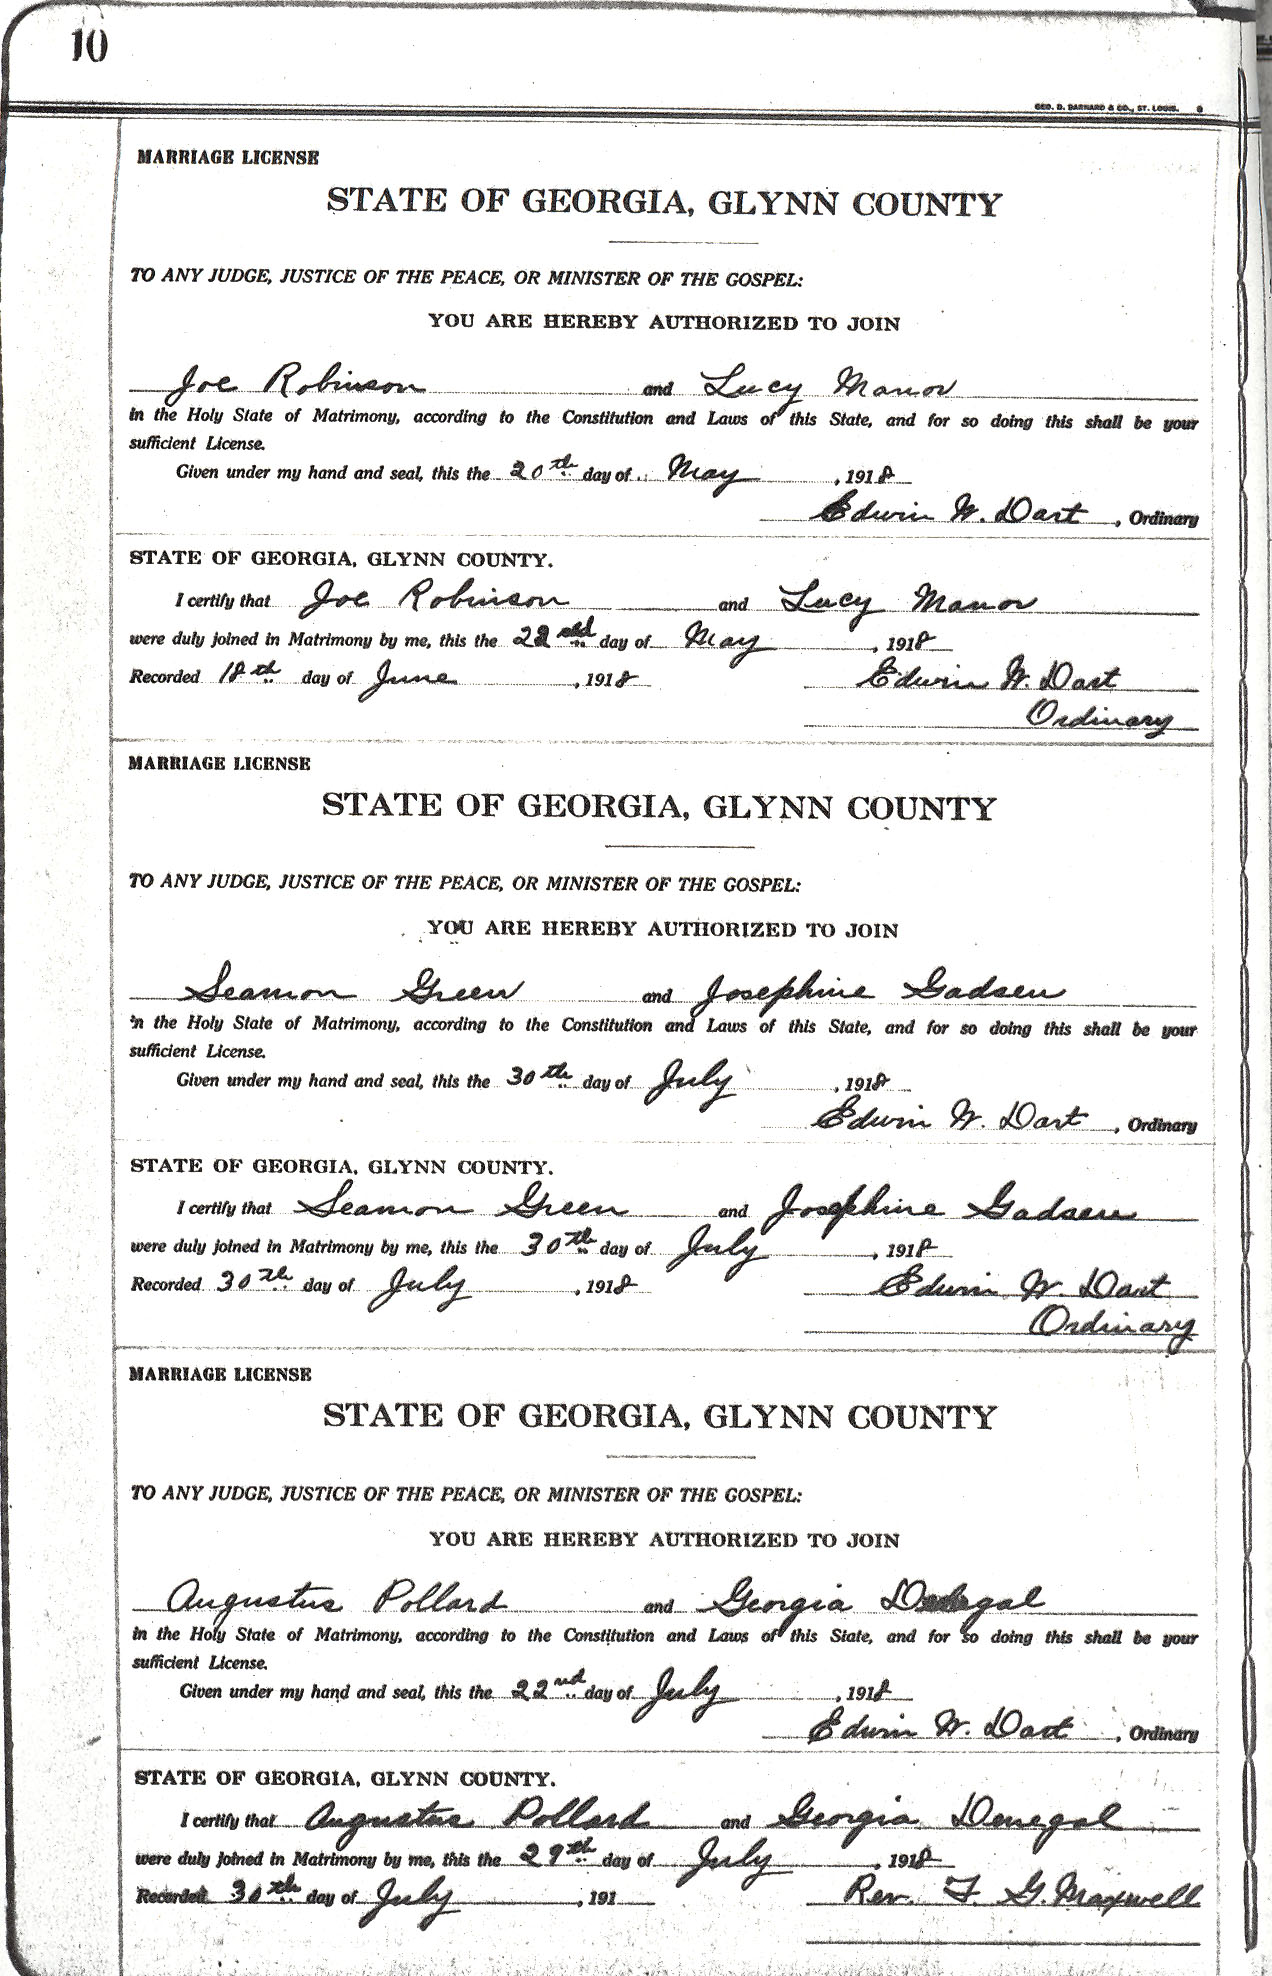 10
GEO. D. BARNARD & CO., ST. LOUIS.
MARRIAGE LICENSE
STATE OF GEORGIA, GLYNN COUNTY
TO ANY JUDGE, JUSTICE OF THE PEACE, OR MINISTER OF THE GOSPEL:
YOU ARE HEREBY AUTHORIZED TO JOIN
Joe Robinson and Lucy Manor
in the Holy State of Matrimony, according to the Constitution and Laws of this State, and for so doing this shall be your
sufficient License.
Given under my hand and seal, this the 20th day of May, 1918
Edwin W. Dart, Ordinary
STATE OF GEORGIA, GLYNN COUNTY.
I certify that Joe Robinson and Lucy Manor
were duly joined in Matrimony by me, this the 22nd day of May, 1918
Recorded 18th day of June, 1918 Edwin W. Dart
Ordinary
MARRIAGE LICENSE
STATE OF GEORGIA, GLYNN COUNTY
TO ANY JUDGE, JUSTICE OF THE PEACE, OR MINISTER OF THE GOSPEL:
YOU ARE HEREBY AUTHORIZED TO JOIN
Seamon Green and Josephine Gadsen
in the Holy State of Matrimony, according to the Constitution and Laws of this State, and for so doing this shall be your
sufficient License.
Given under my hand and seal, this the 30th day of July, 1918
Edwin W. Dart, Ordinary
STATE OF GEORGIA, GLYNN COUNTY.
I certify that Seamon Green and Josephine Gadsen
were duly joined in Matrimony by me, this the 30th day of July, 1918
Recorded 30th day of July, 1918 Edwin W. Dart
Ordinary
MARRIAGE LICENSE
STATE OF GEORGIA, GLYNN COUNTY
TO ANY JUDGE, JUSTICE OF THE PEACE, OR MINISTER OF THE GOSPEL:
YOU ARE HEREBY AUTHORIZED TO JOIN
Augustus Pollard and Georgia Denegal
in the Holy State of Matrimony, according to the Constitution and Laws of this State, and for so doing this shall be your
sufficient License.
Given under my hand and seal, this the 22nd day of July, 1918
Edwin W. Dart, Ordinary
STATE OF GEORGIA, GLYNN COUNTY.
I certify that Augustus Pollard and Georgia Denegal
were duly joined in Matrimony by me, this the 29th day of July, 1918
Recorded 30th day of July, 191 Rev. F. G. Maxwell